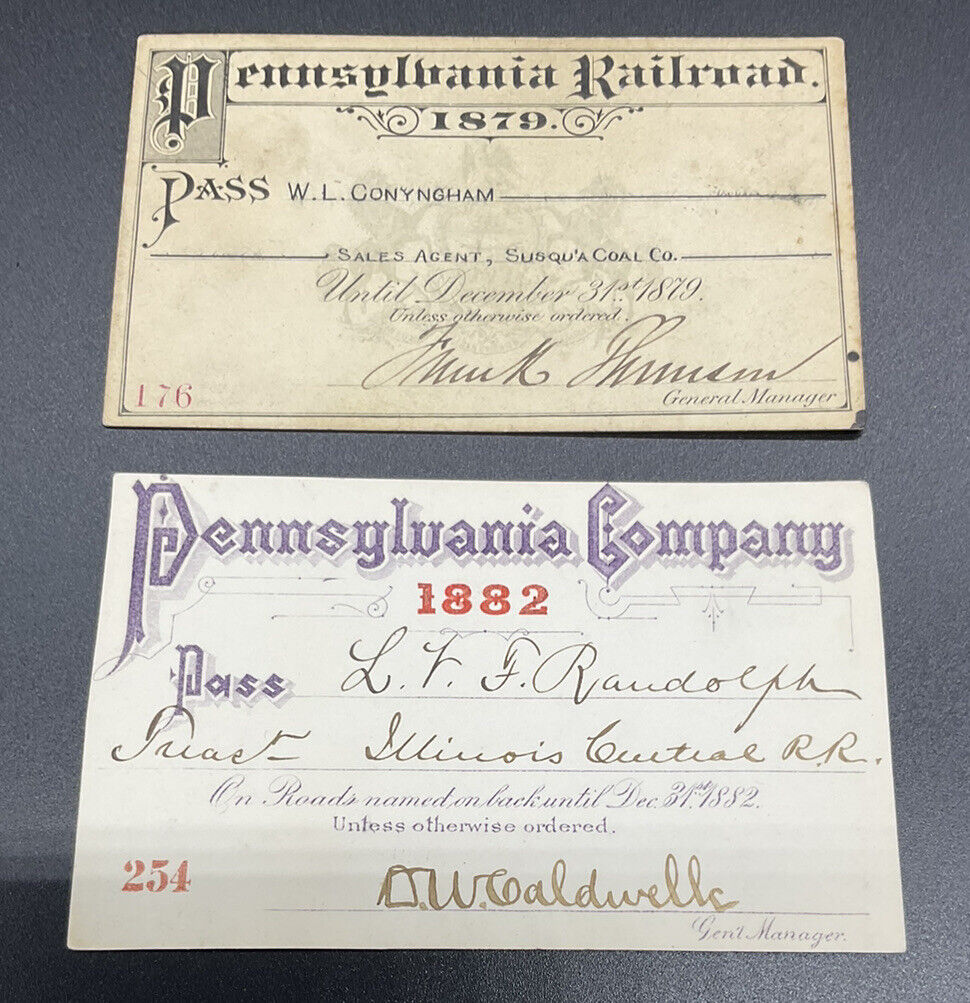 Pennsylvania Railroad.
1879.
PASS W. L. CONYNGHAM
SALES AGENT, SUSQU'A COAL CO.
Until December 31st 1879.
Unless otherwise ordered.
Frank Thomson
176
General Manager
Pennsylvania Company
1882
Pass L. V. F. Randolph
Treast Illinois Central R.R.
On Roads named on back until Dec. 31st 1882.
Unless otherwise ordered.
254
D. W. Caldwell
Gen'l Manager.